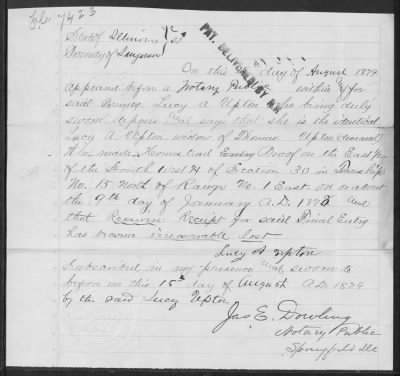 File 7423
State of Illinois
County of Sangamon } ss
On this day of August 1879
appeared before a Notary Public within & for
said County Lucy A Upton who being duly
sworn deposes and says that she is the identical
Lucy A. Upton widow of Thomas Upton deceased
Who made Homestead Entry Proof on the East ½
of the South West ¼ of Section 30 in Township
No. 15 North of Range No. 1 East on or about
the 9th day of January A.D. 1878 and
that Receivers Receipt for said Final Entry
has become irrecoverable lost
Lucy A Upton
Subscribed in my presence and sworn to
before me this 15th day of August A.D. 1879
by the said Lucy Upton
Jas E. Dowling
Notary Public
Springfield Ills